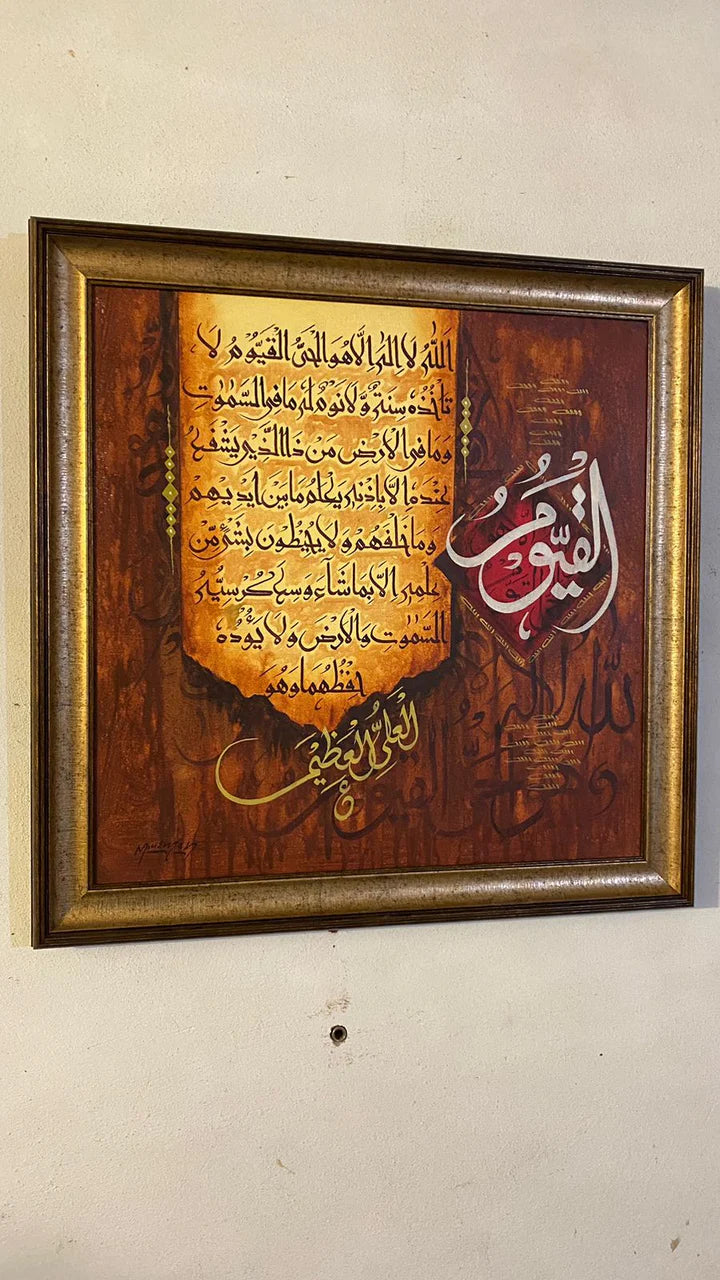 اَللّٰهُ لَا اِلٰهَ اِلَّا هُوَ الْحَىُّ الْقَيُّوْمُ لَا
تَأْخُذُهٗ سِنَةٌ وَّلَا نَوْمٌ لَهٗ مَا فِى السَّمٰوٰتِ
وَمَا فِى الْاَرْضِ مَنْ ذَا الَّذِىْ يَشْفَعُ
عِنْدَهٗ اِلَّا بِاِذْنِهٖ يَعْلَمُ مَا بَيْنَ اَيْدِيْهِمْ
وَمَا خَلْفَهُمْ وَلَا يُحِيْطُوْنَ بِشَىْءٍ مِّنْ
عِلْمِهٖ اِلَّا بِمَا شَآءَ وَسِعَ كُرْسِيُّهُ
السَّمٰوٰتِ وَالْاَرْضَ وَلَا يَؤُدُهٗ
حِفْظُهُمَا وَهُوَ
الْعَلِىُّ الْعَظِيْمُ
الْقَيُّوْمُ